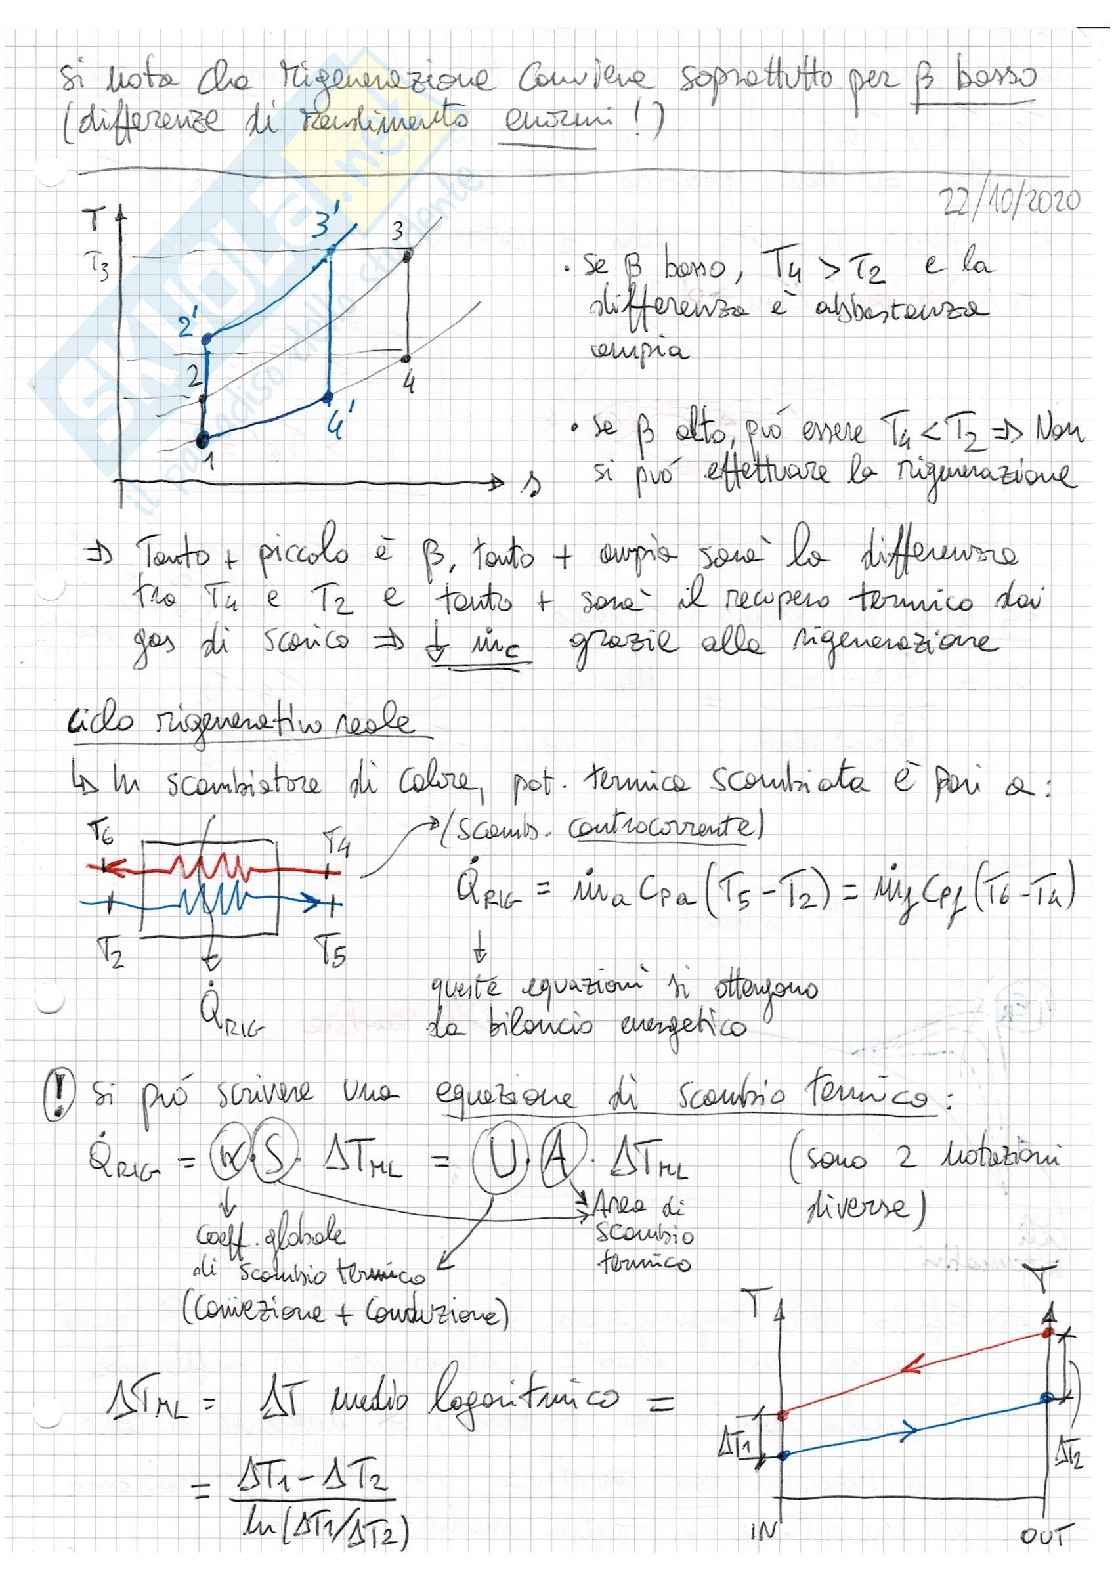 si nota che rigenerazione conviene soprattutto per β basso
(differenze di rendimento enormi!)
22/10/2020
T
T3
3'
3
2'
2
4
4'
1
s
· se β basso, T4 > T2 e la
differenza è abbastanza
ampia
· se β alto, può essere T4 < T2 => Non
si può effettuare la rigenerazione
=> Tanto + piccolo è β, tanto + ampia sarà la differenza
tra T4 e T2 e tanto + sarà il recupero termico dai
gas di scarico => ↓ ṁc grazie alla rigenerazione
ciclo rigenerativo reale
↳ In scambiatore di calore, pot. termica scambiata è pari a:
T6
T4
(scamb. controcorrente)
Q̇RIG = ṁa cpa (T5 - T2) = ṁf cpf (T6 - T4)
T2
T5
Q̇RIG
queste equazioni si ottengono
da bilancio energetico
! si può scrivere una equazione di scambio termico:
Q̇RIG = K·S·ΔTML = U·A·ΔTML (sono 2 notazioni
diverse)
coeff. globale
di scambio termico
(convezione + conduzione)
Area di
scambio
termico
ΔTML = ΔT medio logaritmico =
= ΔT1 - ΔT2
ln(ΔT1/ΔT2)
T
T
ΔT1
ΔT2
IN
OUT
SKUOLA.net
il paradiso dello studente